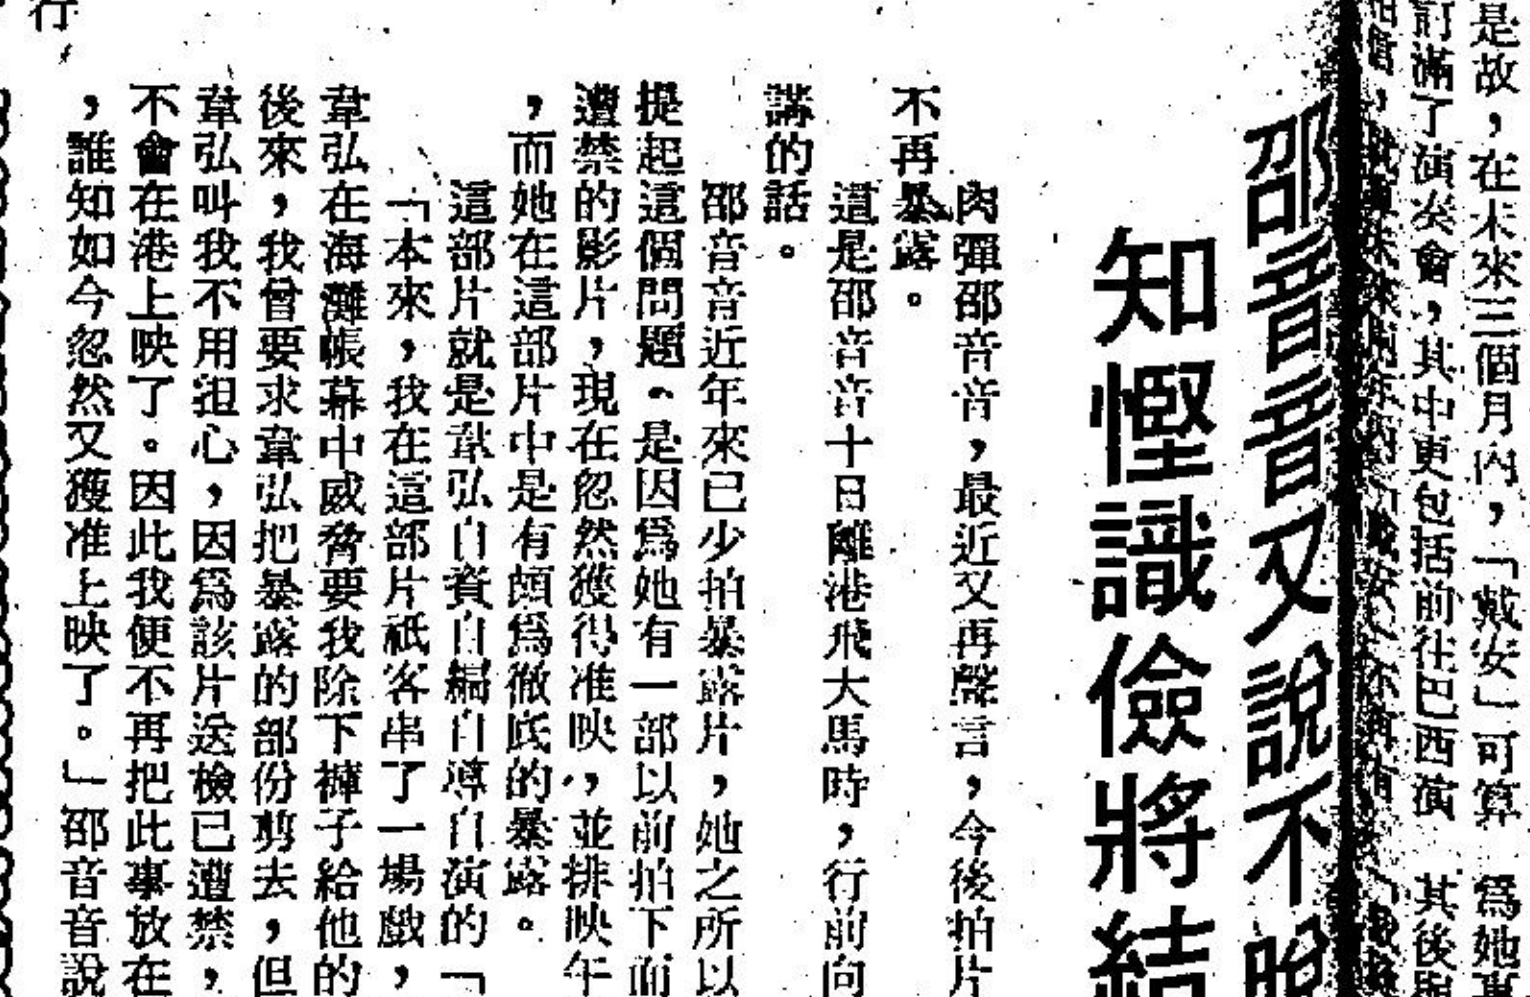 是故，在未來三個月內，「戴安」可算 爲她
訂滿了演奏會，其中更包括前往巴西演 其後
邵音音又說不脫
知慳識儉將結
肉彈邵音音，最近又再聲言，今後拍片
不再暴露。
這是邵音音十日離港飛大馬時，行前向
講的話。
邵音音近年來已少拍暴露片，她之所以
提起這個問題。是因爲她有一部以前拍下而
遭禁的影片，現在忽然獲得准映，並排映午
，而她在這部片中是有頗爲徹底的暴露。
這部片就是韋弘自資自編自導自演的「
「本來，我在這部片祇客串了一場戲，
韋弘在海灘帳幕中威脅要我除下褲子給他的
後來，我曾要求韋弘把暴露的部份剪去，但
韋弘叫我不用担心，因爲該片送檢已遭禁，
不會在港上映了。因此我便不再把此事放在
，誰知如今忽然又獲准上映了。」邵音音說
行